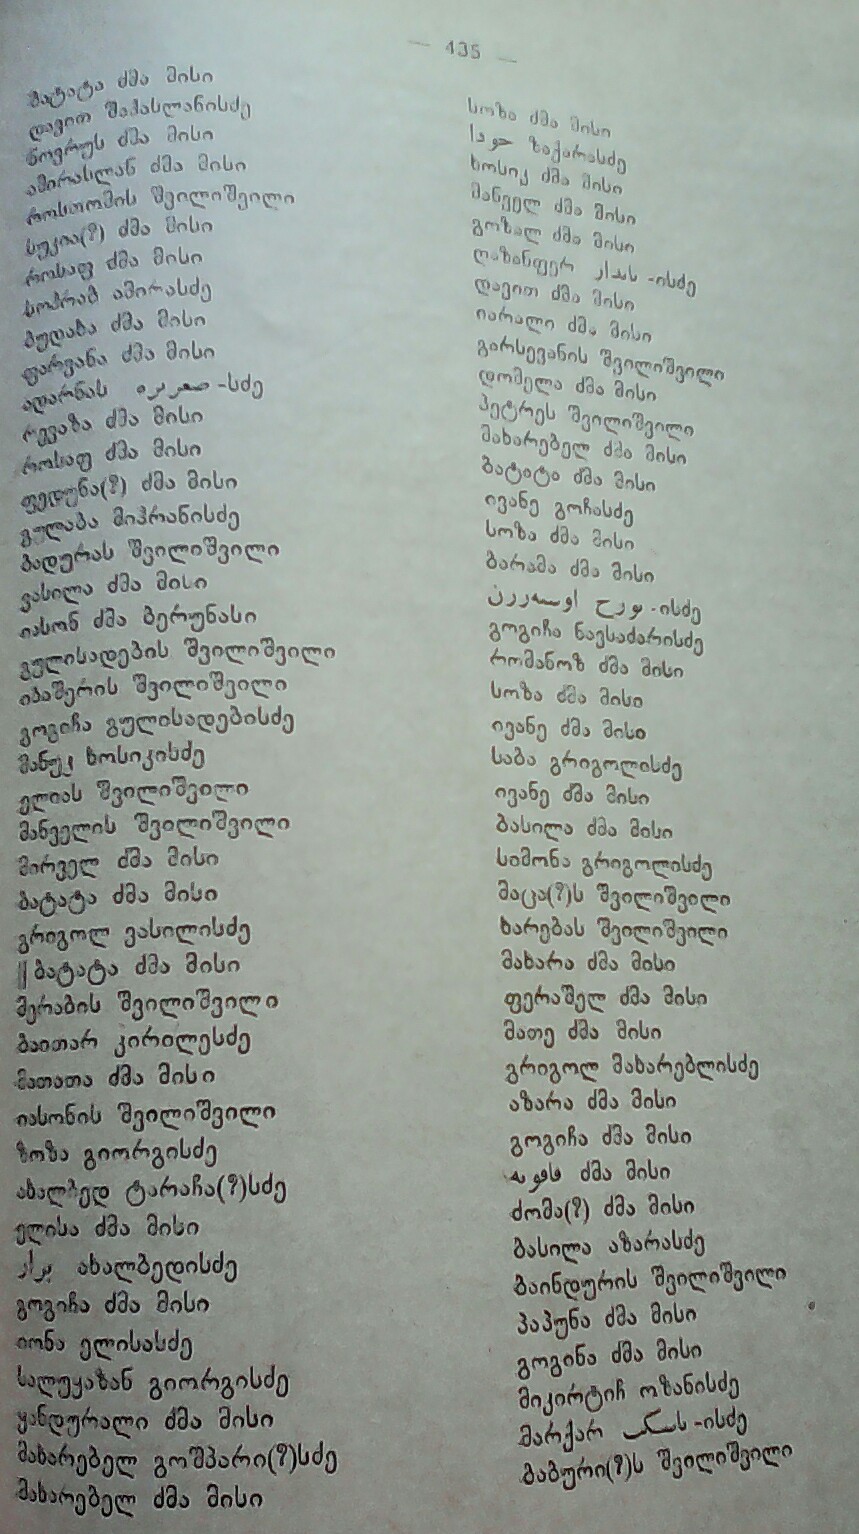 — 435 —
ბატატა ძმა მისი
დავით შაჰასლანისძე
ნოვრუს ძმა მისი
ამირასლან ძმა მისი
როსთომის შვილიშვილი
სუკია(?) ძმა მისი
როსაფ ძმა მისი
სოჰრაბ ამირასძე
ბუდაბა ძმა მისი
ფარვანა ძმა მისი
ადარნას -სძე
რევაზა ძმა მისი
როსაფ ძმა მისი
ფედუნა(?) ძმა მისი
გულაბა მიჰრანისძე
ბადურას შვილიშვილი
ვასილა ძმა მისი
იასონ ძმა ბერუნასი
გულისადების შვილიშვილი
იბაშერის შვილიშვილი
გოგიჩა გულისადებისძე
მანუკ ხოსიკისძე
ელიას შვილიშვილი
მანველის შვილიშვილი
მირველ ძმა მისი
ბატატა ძმა მისი
გრიგოლ ვასილისძე
|| ბატატა ძმა მისი
მერაბის შვილიშვილი
ბაითარ კირილესძე
მათათა ძმა მისი
იასონის შვილიშვილი
ზოზა გიორგისძე
ახალბედ ტარაჩა(?)სძე
ელისა ძმა მისი
ახალბედისძე
გოგიჩა ძმა მისი
იონა ელისასძე
სალუყაზან გიორგისძე
ყანდურალი ძმა მისი
მახარებელ გოშპარი(?)სძე
მახარებელ ძმა მისი
სოზა ძმა მისი
ზაქარასძე
ხოსიკ ძმა მისი
მანველ ძმა მისი
გოზალ ძმა მისი
ღაზანფერ -ისძე
დავით ძმა მისი
იარალი ძმა მისი
გარსევანის შვილიშვილი
დომელა ძმა მისი
პეტრეს შვილიშვილი
მახარებელ ძმა მისი
ბატატა ძმა მისი
ივანე გოჩასძე
სოზა ძმა მისი
ბარამა ძმა მისი
-ისძე
გოგიჩა ნავსაძარისძე
რომანოზ ძმა მისი
სოზა ძმა მისი
ივანე ძმა მისი
საბა გრიგოლისძე
ივანე ძმა მისი
ბასილა ძმა მისი
სიმონა გრიგოლისძე
მაცა(?)ს შვილიშვილი
ხარებას შვილიშვილი
მახარა ძმა მისი
ფერაშელ ძმა მისი
მათე ძმა მისი
გრიგოლ მახარებლისძე
აზარა ძმა მისი
გოგიჩა ძმა მისი
ძმა მისი
ძომა(?) ძმა მისი
ბასილა აზარასძე
ბაინდურის შვილიშვილი
პაპუნა ძმა მისი
გოგინა ძმა მისი
მიკირტიჩ ოზანისძე
მარქარ -ისძე
ბაბური(?)ს შვილიშვილი